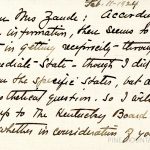 Feb. 11-1924
Mrs Zaude: Accordi
information, there seems to
is getting reciprocity-throug
ediate-State-though I did
the specific States, but a
thetical question. So I wil
up to the Kentucky Board
whether in consideration of yo